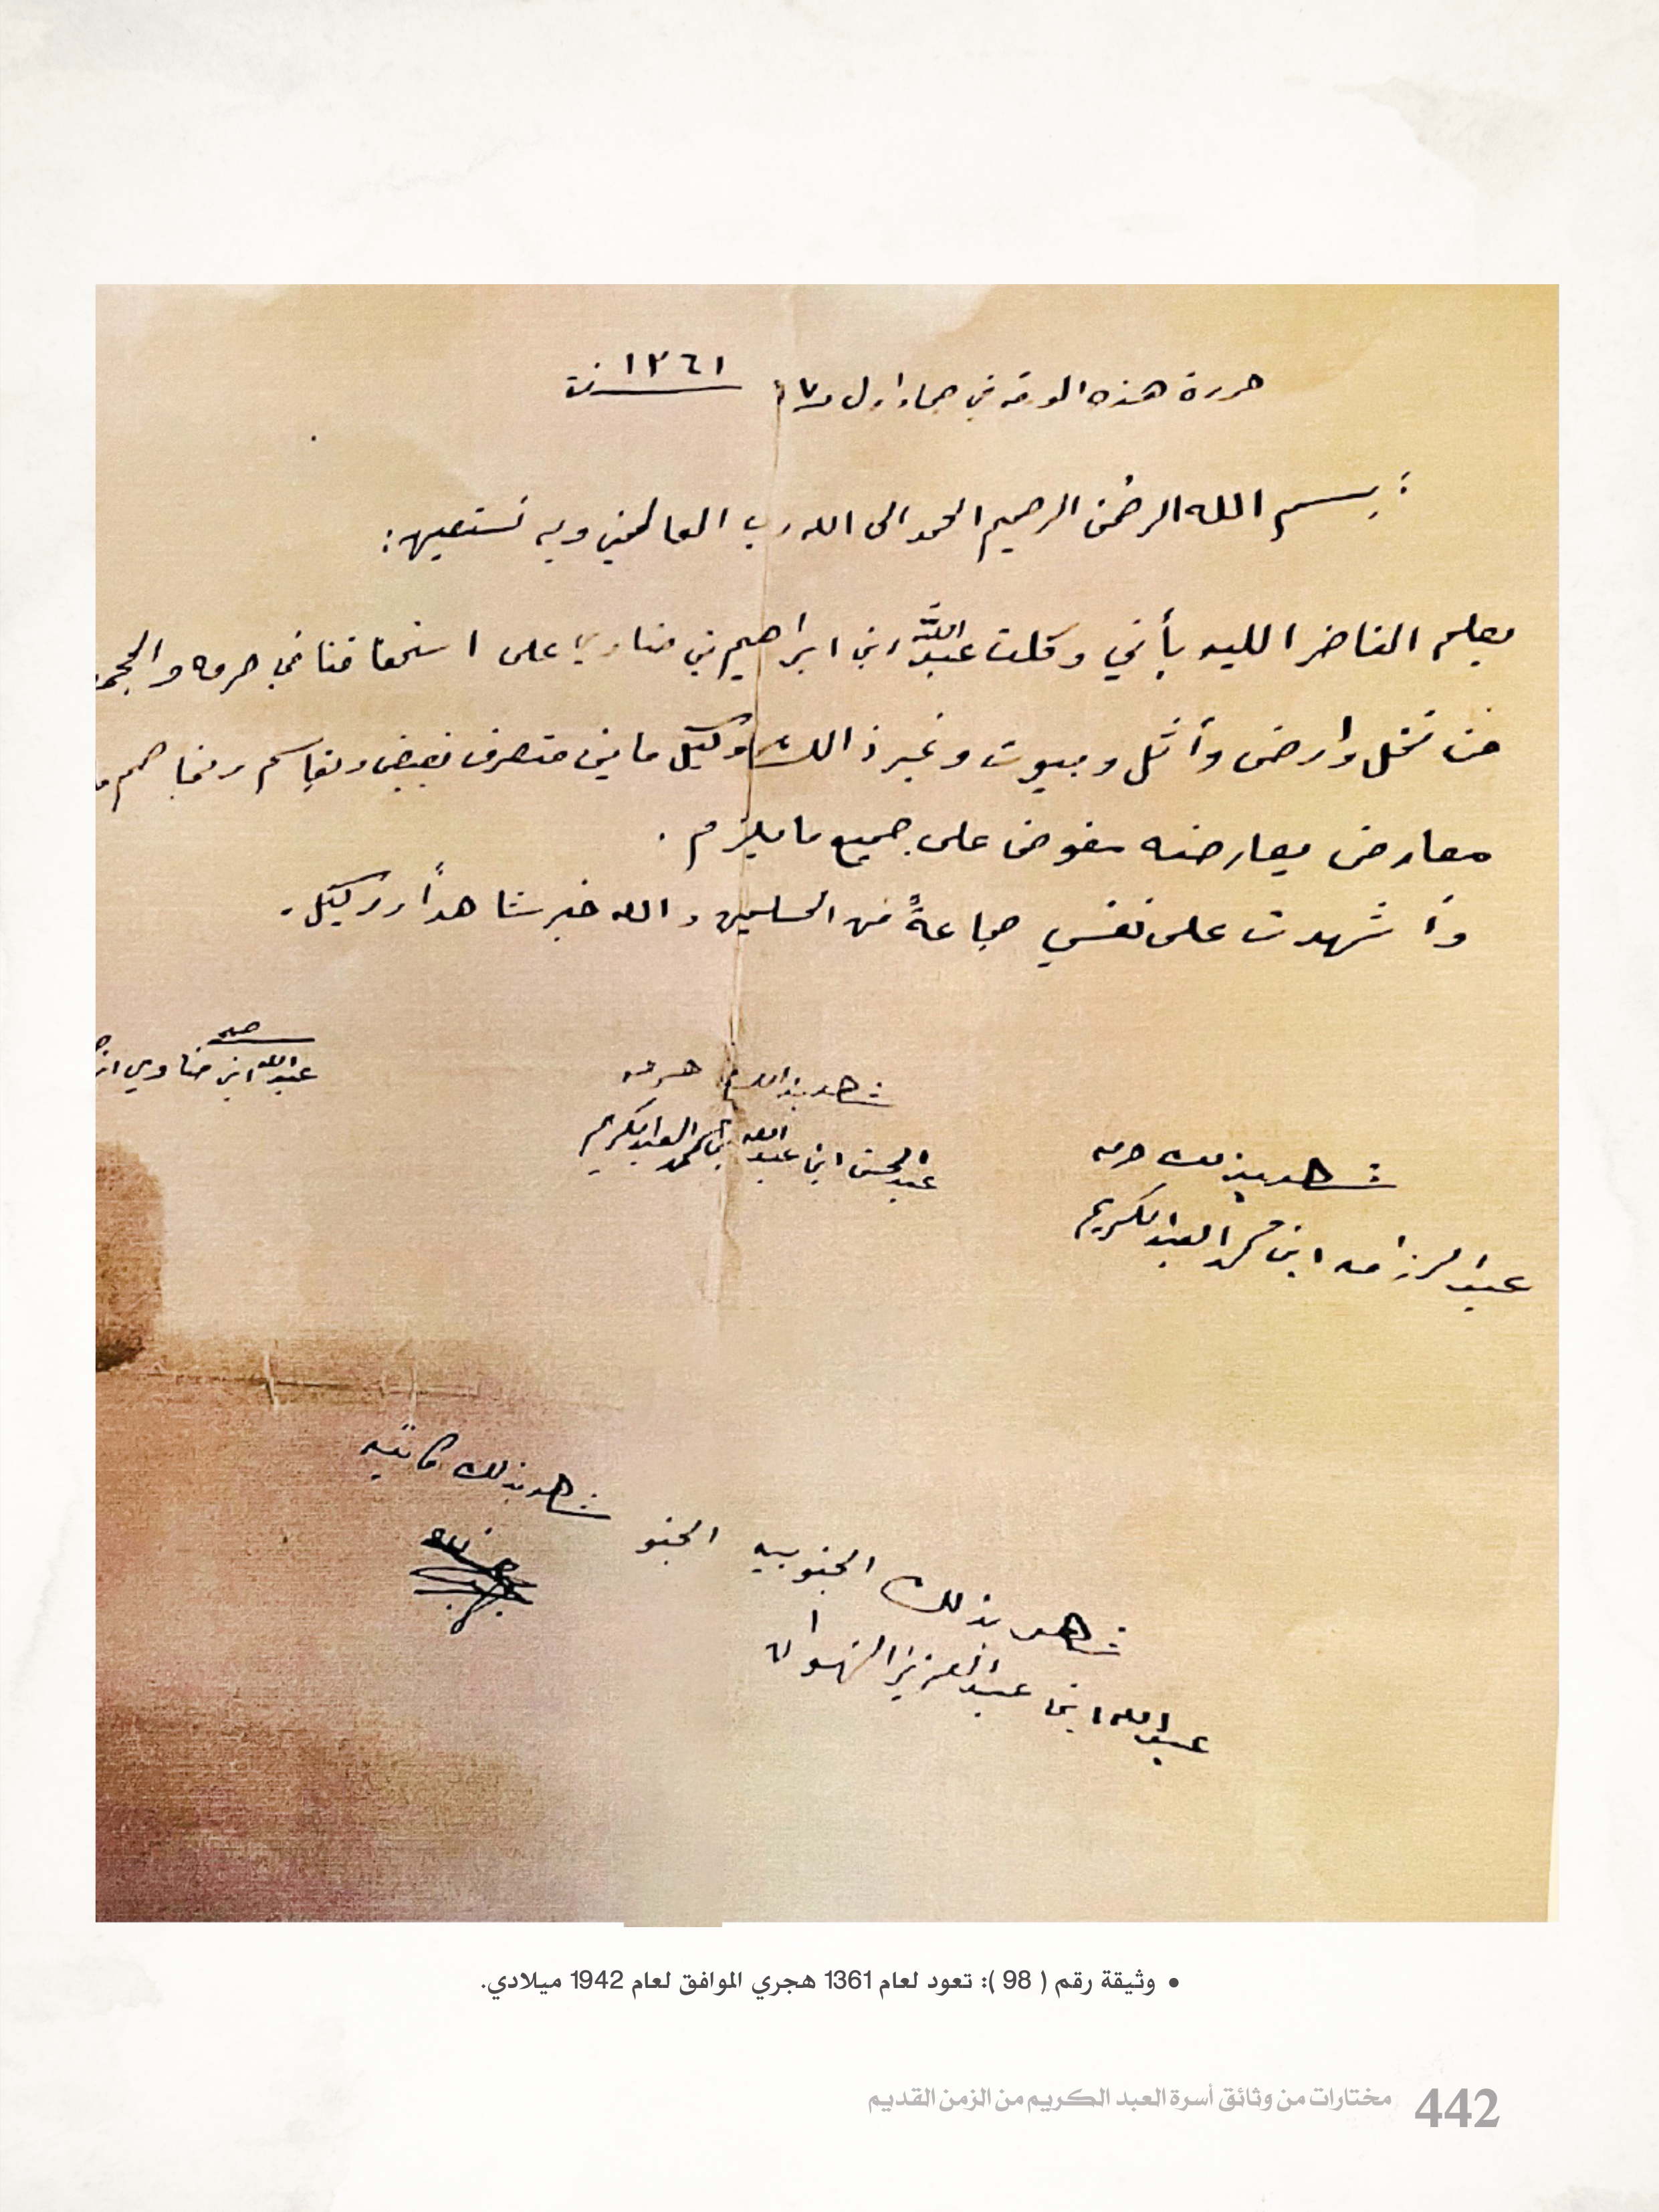 حررة هذه الورقه في جماد اول ١٧ ١٣٦١ سنة
: بسم الله الرحمن الرحيم الحمد الى الله رب العالمين وبه نستعين :
يعلم الناضر اليه بأني وكلت عبدالله ابن ابراهيم بن ضاوي على استحقاقنا في حرمه والمجمـ
من نخل وارض وأثل وبيوت وغير ذالك وكيل ماين متصرف يقبض ويقاسم ويخاصم
معارض يعارضه مفوض على جميع ما يلزم .
وأشهدت على نفسي جماعةً من المسلمين والله خير شاهداً ووكيل .
عبدالله ابن ضاوي
شاهد بذالك حرمه
عبدالمحسن ابن عبدالله بن محمد العبدالكريم
شاهد بذلك حرمه
عبدالرزاق ابن محمد العبدالكريم
شاهد بذلك كاتبه
شاهد بذلك الجنوبيه الجنو
عبدالله ابن عبدالعزيز
• وثيقة رقم ( 98 ): تعود لعام 1361 هجري الموافق لعام 1942 ميلادي.
442 مختارات من وثائق أسرة العبد الكريم من الزمن القديم